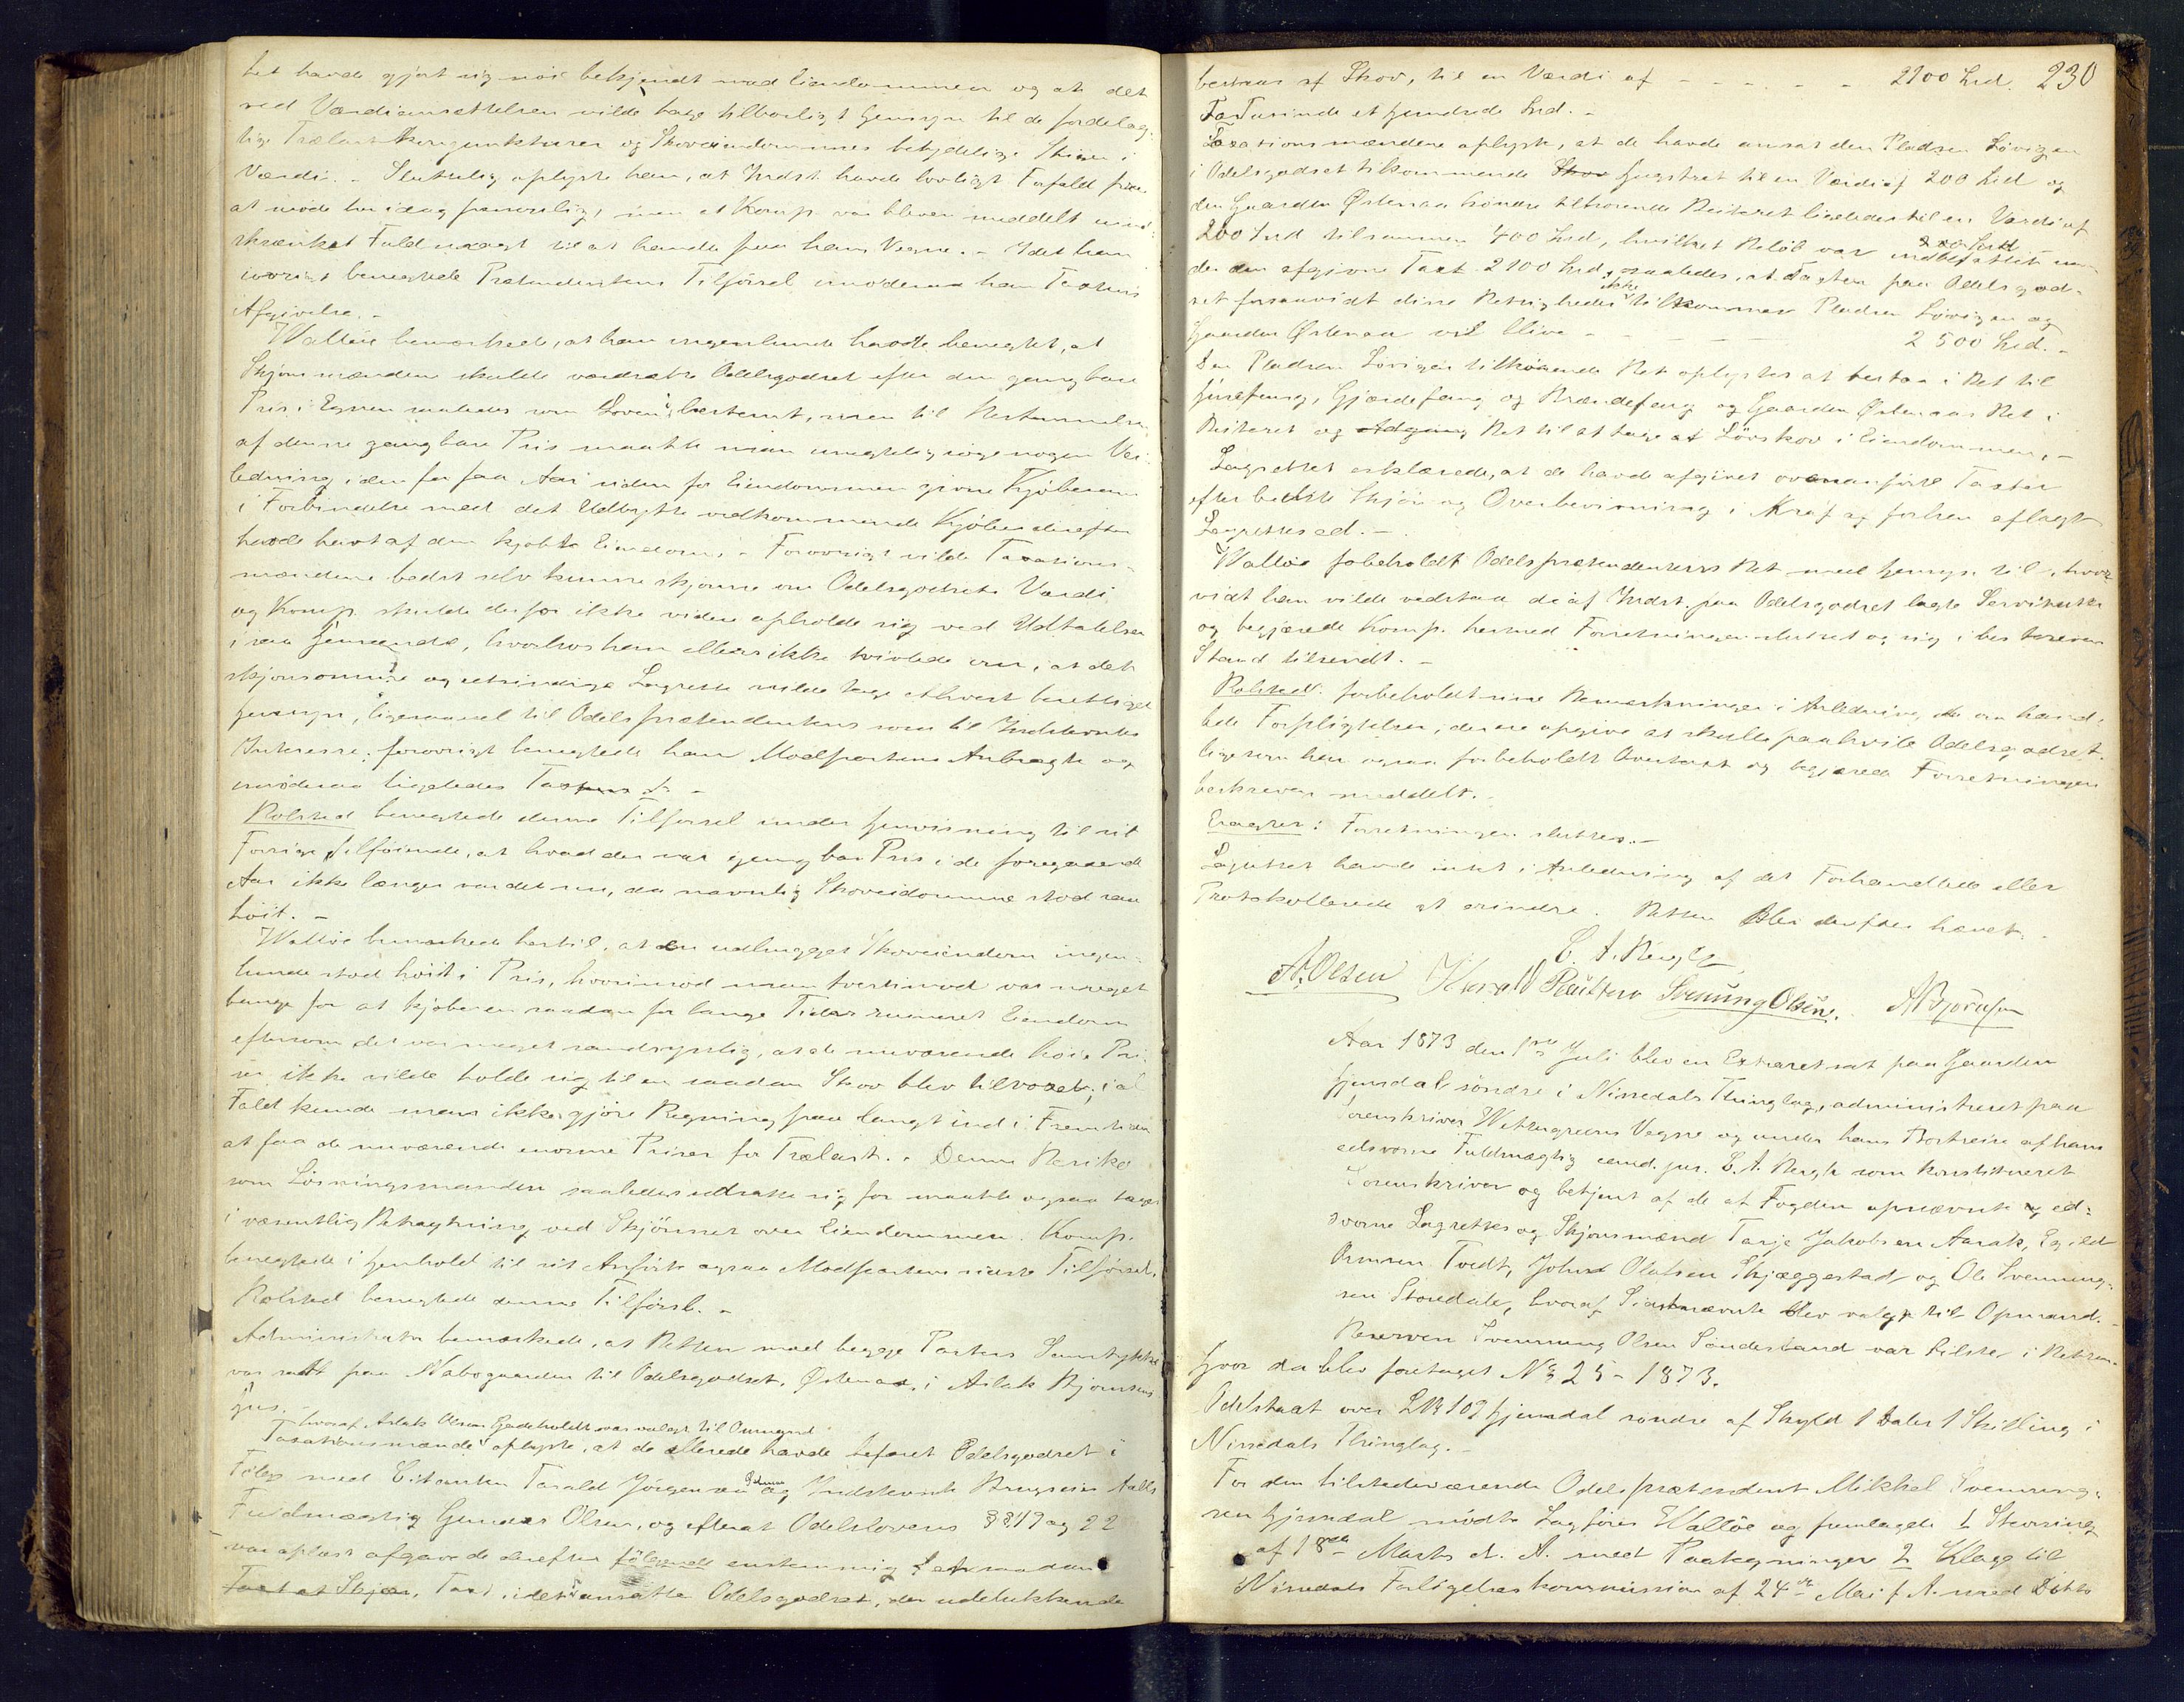 tet havde gjort sig nöie bekjendt med Eiendommen og at det
ved Værdiansættelsen vilde tage tilbørligt Hensyn til de fordelag-
tige Trælastkonjunkturer og Skoveiendommes betydelige Stigen i
Værdi. - Sluttelig oplyste han, at Indst. havde lovligt Forfald fra
at møde her idag personlig, men at Komp. var bleven meddelt uind-
skrænket Fuldmagt til at handle paa hans Vegne. - Idet han
iövrigt benegtede Prætendentens Tilförsel imödesaa han Taxtens
Afgivelse. -
Wallöe bemærkede, at han ingenlunde havde benegtet, at
Skjönsmændene skulde værdsætte Odelsgodset efter den gangbare
Pris i Egnen saaledes som Loven bestemt, men til Bestemmelsen
af denne gangbare Pris maatte man unegtelig söge nogen Vei-
ledning i den for faa Aar siden for Eiendommen givne Kjöbesum
i Forbindelse med det Udbytte vedkommende Kjöber derefter
havde havt af den kjöbte Eiendom. - Forövrigt vilde Taxations-
mændene bedst selv kunne skjönne om Odelsgodsets Værdi
og Komp. skulde derfor ikke videre opholde sig ved Udtalelser
i saa Henseende, hvorhos han ellers ikke tvivlede om, at det
skjönsomme og retsindige Lagrette vilde tage ethvert berettiget
Hensyn, ligesaavel til Odelsprætendentens som til Indstevntes
Interesse; forövrigt benegtede han Modpartens Anbragte og
imödesaa ligeledes Taxten. -
Rolsted benegtede denne Tilförsel under Henvisning til sit
Forrige, tilföiende, at hvad der var gangbar Pris i de foregaaende
Aar ikke længer var det nu, da navnlig Skoveiendomme stod saa
höit. -
Wallöe bemærkede hertil, at en udhugget Skoveiendom ingen-
lunde stod höit i Pris, hvorimod man tvertimod var meget
bange for at kjöbe en saadan for lange Tider ruineret Eiendom
eftersom det var meget sandsynlig, at de nuværende höie Pri-
ser ikke vilde holde sig til en saadan Skov blev tilvoxet; i al
Fald kunde man ikke gjöre Regning paa langt ind i Fremtiden
at faa de nuværende enorme Priser for Trælast. - Denne Risiko
som Lösningsmanden saaledes udsatte sig for maatte ogsaa tages
i væsentlig Betragtning ved Skjönnet over Eiendommen. Komp.
benegtede i Henhold til sit Anförte ogsaa Modpartens sidste Tilförsel.
Rolsted benegtede denne Tilförsel. -
Administrator bemærkede, at Retten med begge Parters Samtykke
var satt paa Nabogaarden til Odelsgodset, Östenaa, i Aslak Bjornsens
Hus. -
hvoraf Aslak Olsen Gjedeholdt var valgt til Opmand
Taxationsmænde oplyste, at de allerede havde befaret Odelsgodset i
Fölge med Citanten Tarald Jörgensen og Indstevnte Brugseier Aalls
Fuldmægtig Gunder Olsen, og efterat Odelslovens §§ 19 og 22
var oplæst afgave de derefter følgende enstemmig saadan
Taxt at Skjön, Taxt, idet ansatte Odelsgodset, der udelukkende
bestaar af Skov, til en Værdi af - - - - - 2100 Spd. 230
To Tusinde et Hundrede Spd. -
Taxationsmændene oplyste, at de havde ansat den Pladsen Lövigen
i Odelsgodset tilkommende Skov Hugstret til en Værdi af 200 Spd og
den Gaarden Östenaa söndre tilhörende Beiteret ligeledes til en Værdi af
200 Spd tilsammen 400 Spd, hvilket Belöb var indbefattet un-
der den afgivne Taxt 2100 Spd, saaledes, at Taxten paa Odelsgod-
set forsaavidt disse Rettigheder ikke tilkommer Pladsen Lövigen og
Gaarden Östenaa vil blive - - - - 2500 Spd. -
Den Pladsen Lövigen tilhörende Ret oplystes at bestaa i Ret til
Husefang, Gjærdefang og Brændefang og Gaarden Östenaas Ret i
Beiteret og Adgang Ret til at tage af Lövskov i Eiendommen. -
Lagrettet erklærede, at de havde afgivet ovenanförte Taxter
efter bedste Skjön og Overbevisning i Kraf af forhen aflagt
Lagrettesed. -
Wallöe forbeholdt Odelsprætendentens Ret med Hensyn til, hvor-
vidt han vilde vedstaa de af Indst. paa Odelsgodset lagte Servitutter
og begjærede Komp. hermed Forretningen sluttet og sig i beskreven
Stand tilsendt. -
Rolsted: forbeholdt sine Bemærkninger i Anledning de om hand-
lede Forpligtelser, der ere opgivne at skulle paahvile Odelsgodset.
ligesom han ogsaa forbeholdt Overtaxt og begjærede Forretningen
beskreven meddelt. -
Eragtet: Forretningen sluttes. -
Lagrettet havde intet i Anledning af det Forhandlede eller
Protokollerede at erindre. Retten blev derfter hævet. -
C. A. Bergh
A. Olsen Svenung Olsen. ABjörnsen
Aar 1873 den 1ste Juli blev en Extraret sat paa Gaarden
Hjemdal söndre i Nissedals Thinglag, administreret paa
Sorenskriver Wettergreens Vegne og under hans Bortreise af hans
edsvorne Fuldmægtig cand. jur. C. A. Bergh som konstitueret
Sorenskriver og betjent af de af Fogden opnævnte og ed-
svorne Lagrettes og Skjönsmænd Tarje Jakobsen Aarak, Egild
Ormsen Tvedt, John Olafsen Skjæggestad og Ole Svenning-
sen Storedale, hvoraf Sidstnævnte blev valgt til Opmand. -
Reserven Svennung Olsen Sönderland var tilste i Retten. -
Hvor da blev foretaget No 25 - 1873.
Odelstaxt over LN 109 Hjemdal söndre af Skyld 1 Daler 1 Skilling i
Nissedals Thinglag. -
For den tilstedeværende Odelsprætendent Mikkel Svenning-
sen Hjemdal mödte Sagförer Wallöe og fremlagde 1 Stevning
af 18de Marts d. A. med Paategninger 2 Klage til
Nissedals Forligelseskommission af 24de Mai f. A. med Dito